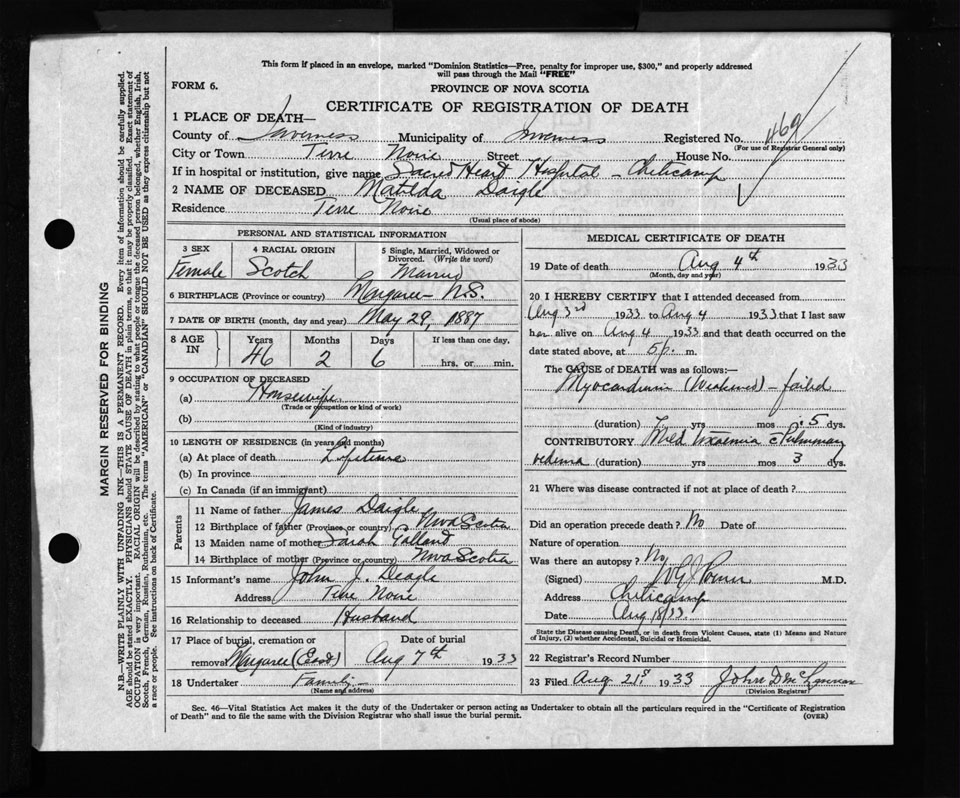 This form if placed in an envelope, marked "Dominion Statistics—Free, penalty for improper use, $300," and properly addressed
will pass through the Mail "FREE"
FORM 6.
PROVINCE OF NOVA SCOTIA
CERTIFICATE OF REGISTRATION OF DEATH
1 PLACE OF DEATH—
County of Inverness Municipality of Inverness Registered No. 469
(For use of Registrar General only)
City or Town Terre Noire Street House No.
If in hospital or institution, give name Sacred Heart Hospital – Cheticamp
2 NAME OF DECEASED Matilda Daigle
Residence Terre Noire
(Usual place of abode)
PERSONAL AND STATISTICAL INFORMATION
3 SEX 4 RACIAL ORIGIN 5 Single, Married, Widowed or Divorced. (Write the word)
Female Scotch Married
6 BIRTHPLACE (Province or country) Margaree – N.S.
7 DATE OF BIRTH (month, day and year) May 29, 1887
8 AGE IN Years Months Days If less than one day.
46 2 6 hrs. or min.
9 OCCUPATION OF DECEASED
(a) Housewife
(Trade or occupation or kind of work)
(b)
(Kind of industry)
10 LENGTH OF RESIDENCE (in years and months)
(a) At place of death Lifetime
(b) In province
(c) In Canada (if an immigrant)
Parents
11 Name of father James Daigle
12 Birthplace of father (Province or country) Nova Scotia
13 Maiden name of mother Sarah
14 Birthplace of mother (Province or country) Nova Scotia
15 Informant's name John J. Deagle
Address Terre Noire
16 Relationship to deceased Husband
17 Place of burial, cremation or Date of burial
removal Margaree (East) Aug 7th 1933
18 Undertaker Family
(Name and address)
MEDICAL CERTIFICATE OF DEATH
19 Date of death Aug 4th 1933
(Month, day and year)
20 I HEREBY CERTIFY that I attended deceased from
Aug 3rd 1933 to Aug 4 1933 that I last saw
her alive on Aug 4 1933 and that death occurred on the
date stated above, at 5 p. m.
The CAUSE of DEATH was as follows:—
Myocardium (Weakened) – failed
(duration) yrs mos 5 dys.
CONTRIBUTORY Pulmonary
oedema (duration) yrs mos 3 dys.
21 Where was disease contracted if not at place of death?
Did an operation precede death? No Date of
Nature of operation
Was there an autopsy? No
(Signed) M.D.
Address Cheticamp
Date Aug 18/33
State the Disease causing Death, or in death from Violent Causes, state (1) Means and Nature
of Injury, (2) whether Accidental, Suicidal or Homicidal.
22 Registrar's Record Number
23 Filed Aug 21st 1933 John D McLennan
(Division Registrar)
Sec. 46—Vital Statistics Act makes it the duty of the Undertaker or person acting as Undertaker to obtain all the particulars required in the "Certificate of Registration
of Death" and to file the same with the Division Registrar who shall issue the burial permit. (OVER)
MARGIN RESERVED FOR BINDING
N.B.—WRITE PLAINLY WITH UNFADING INK—THIS IS A PERMANENT RECORD. Every item of information should be carefully supplied.
AGE should be stated EXACTLY. PHYSICIANS should STATE CAUSE OF DEATH in plain terms, so that it may be properly classified. Exact statement of
OCCUPATION is very important. RACIAL ORIGIN will be described by stating to what people or tongue the deceased person belonged, whether English, Irish,
Scotch, French, German, Russian, Ruthenian, etc. The terms "AMERICAN" or "CANADIAN" SHOULD NOT BE USED as they express citizenship but not
a race or people. See instructions on back of Certificate.